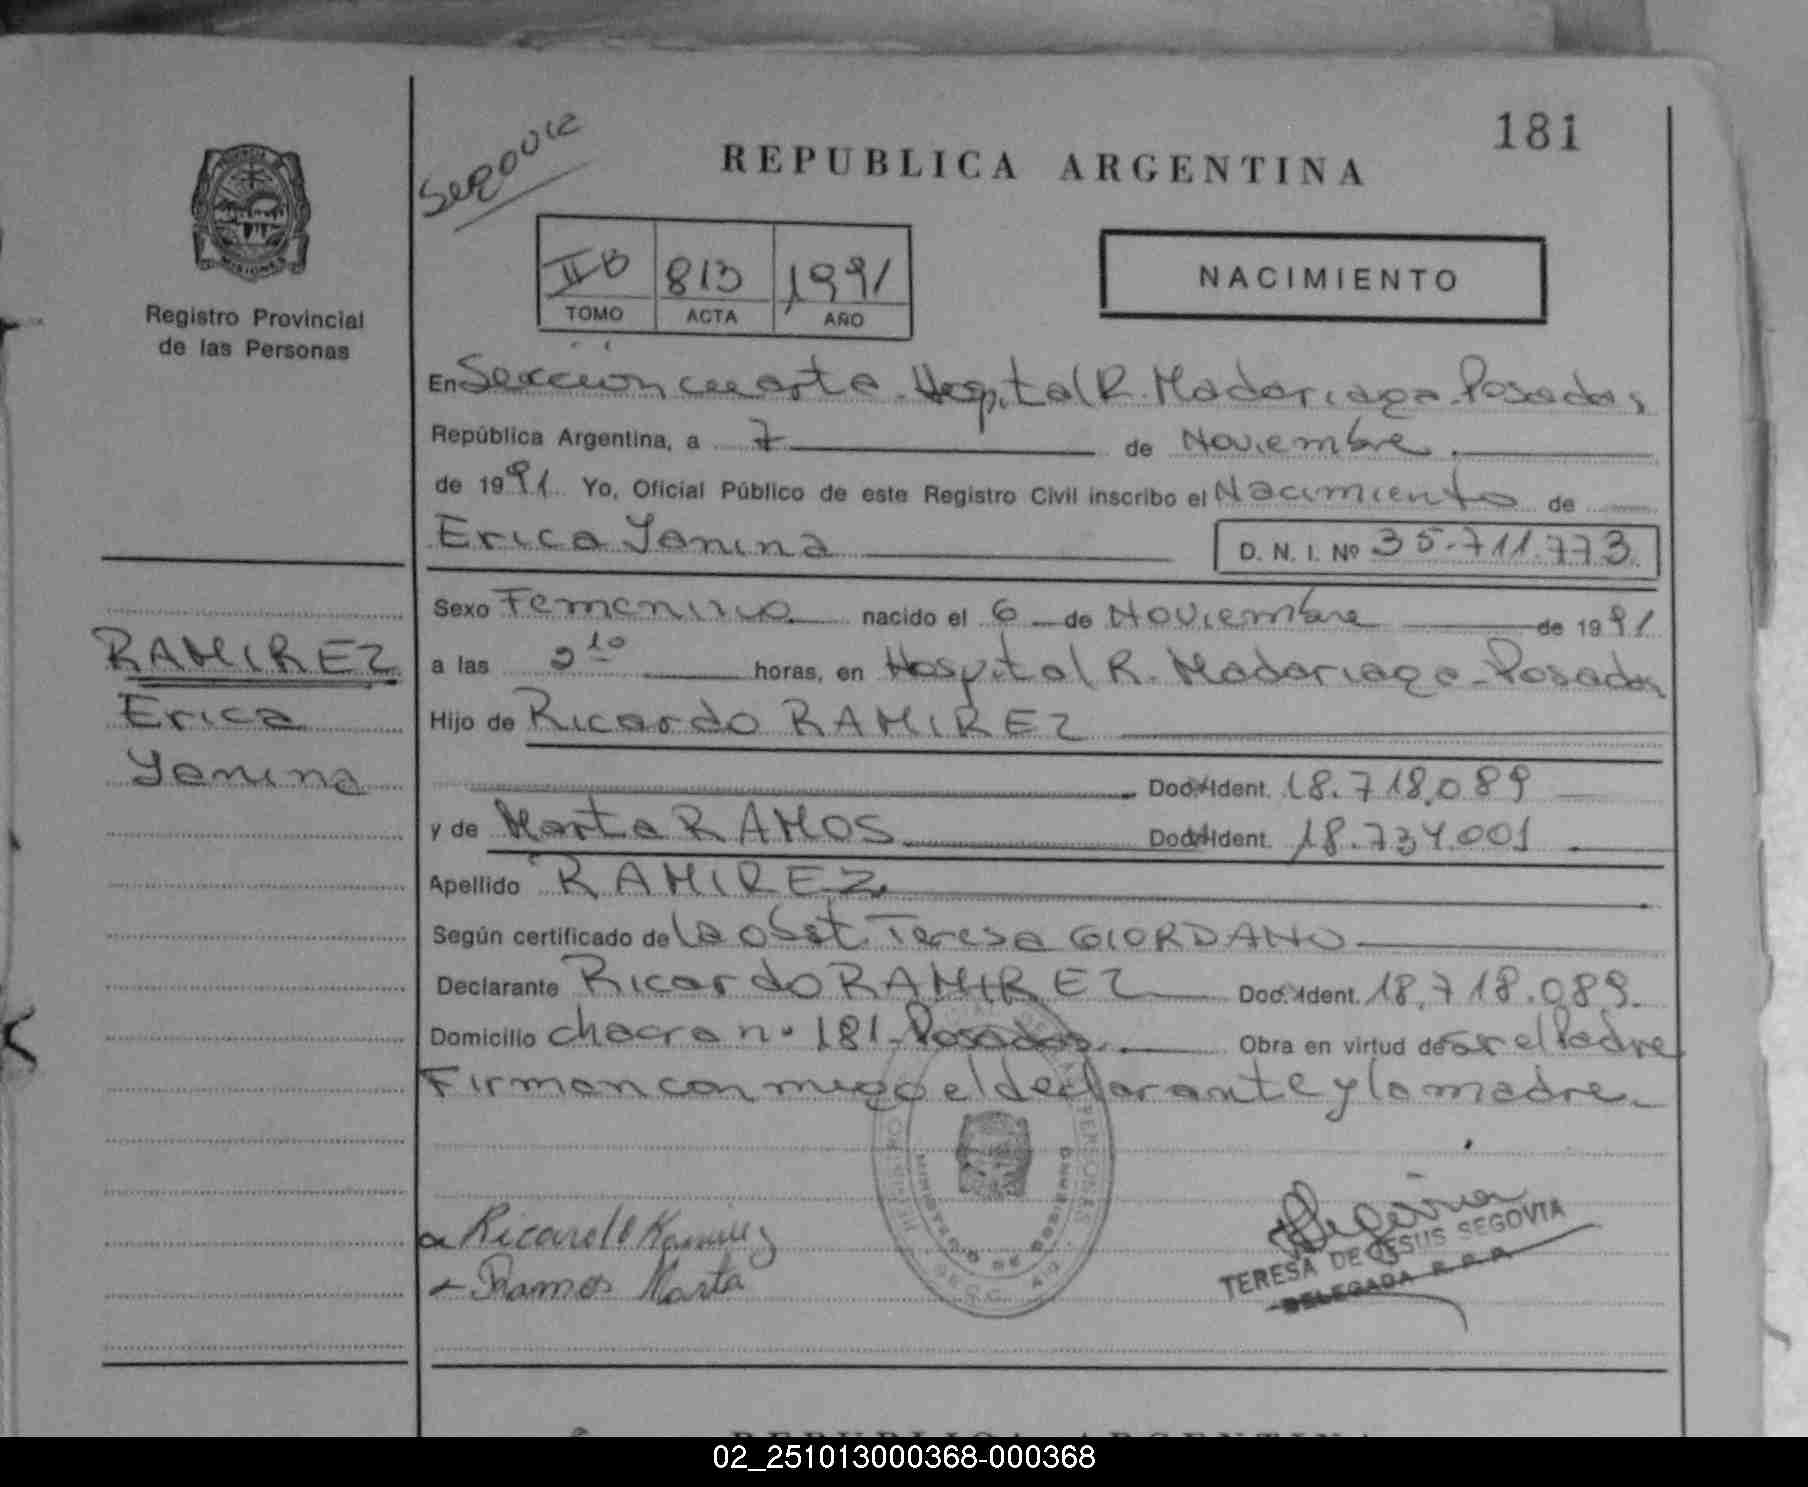 181
Segovia
REPUBLICA ARGENTINA
MISIONES
Registro Provincial
de las Personas
II B 813 1991
TOMO ACTA AÑO
NACIMIENTO
En Sección cuarta - Hospital R. Madariaga - Posadas,
República Argentina, a 7 de Noviembre
de 1991 Yo, Oficial Público de este Registro Civil inscribo el Nacimiento de
Erica Yanina D. N. I. Nº 35.711.773
Sexo Femenino nacido el 6 de Noviembre de 1991
a las 2 10 horas, en Hospital R. Madariaga - Posadas
Hijo de Ricardo RAMIREZ
Doc. Ident. 18.718.089
y de Marta RAMOS Doc. Ident. 18.734.001
Apellido RAMIREZ
Según certificado de la obst. Teresa GIORDANO
Declarante Ricardo RAMIREZ Doc. Ident. 18.718.089.
Domicilio chacra nº 181 - Posadas. Obra en virtud de ser el Padre
Firman con migo el declarante y la madre.
RAMIREZ
Erica
Yanina
Ricardo Ramirez
Ramos Marta
MINISTERIO DE GOBIERNO
Segovia
TERESA DE JESUS SEGOVIA
DELEGADA R. P. P.
REPUBLICA ARGENTINA
02_251013000368-000368